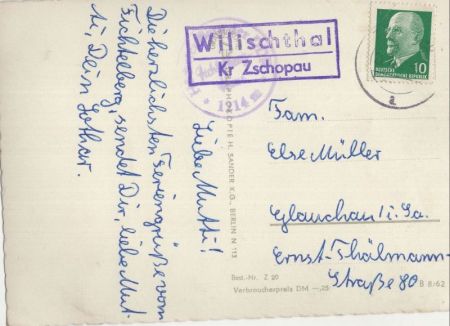 Liebe Mutti!
Die herzlichsten Feriengrüße vom
Fichtelberg, sendet Dir, liebe Mut-
ti, Dein Lothar.
Willischthal
Kr Zschopau
1214 m
DEUTSCHE
DEMOKRATISCHE REPUBLIK
10
a
Fam.
Else Müller
Glauchau i. Sa.
Ernst-Thälmann-
Straße 80
PHOTOPTE H. SANDER K.G., BERLIN N 113
Best.-Nr. Z 20
Verbraucherpreis DM -,25
B 8/62